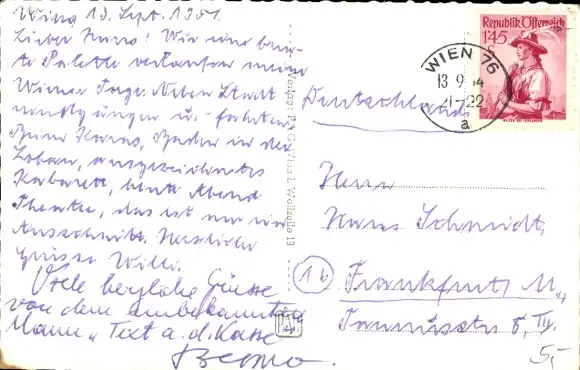 Wien, 13. Sept. 1954.
Lieber Hans! Wie eine bun-
te Palette verlaufen meine
Wiener Tage. Neben Stadt
rundgängen u. -fahrten
Beim Karas, Baden in der
Lobau, ausgezeichnetes
Kabarett, heute Abend
Theater, das ist nur ein
Ausschnitt. Herzliche
Grüsse Willi.
Viele herzliche Grüsse
von dem unbekannten
Mann "Text a. d. Kasse
Benno.
Verlag Wien I. Wollzeile 19
Republik Österreich
1'45
S
WIEN 76
13 9 54
21-22
a
Deutschland
Herrn
Hans Schmidt,
16
Frankfurt M.,
Taunusstr 8, III
5,-